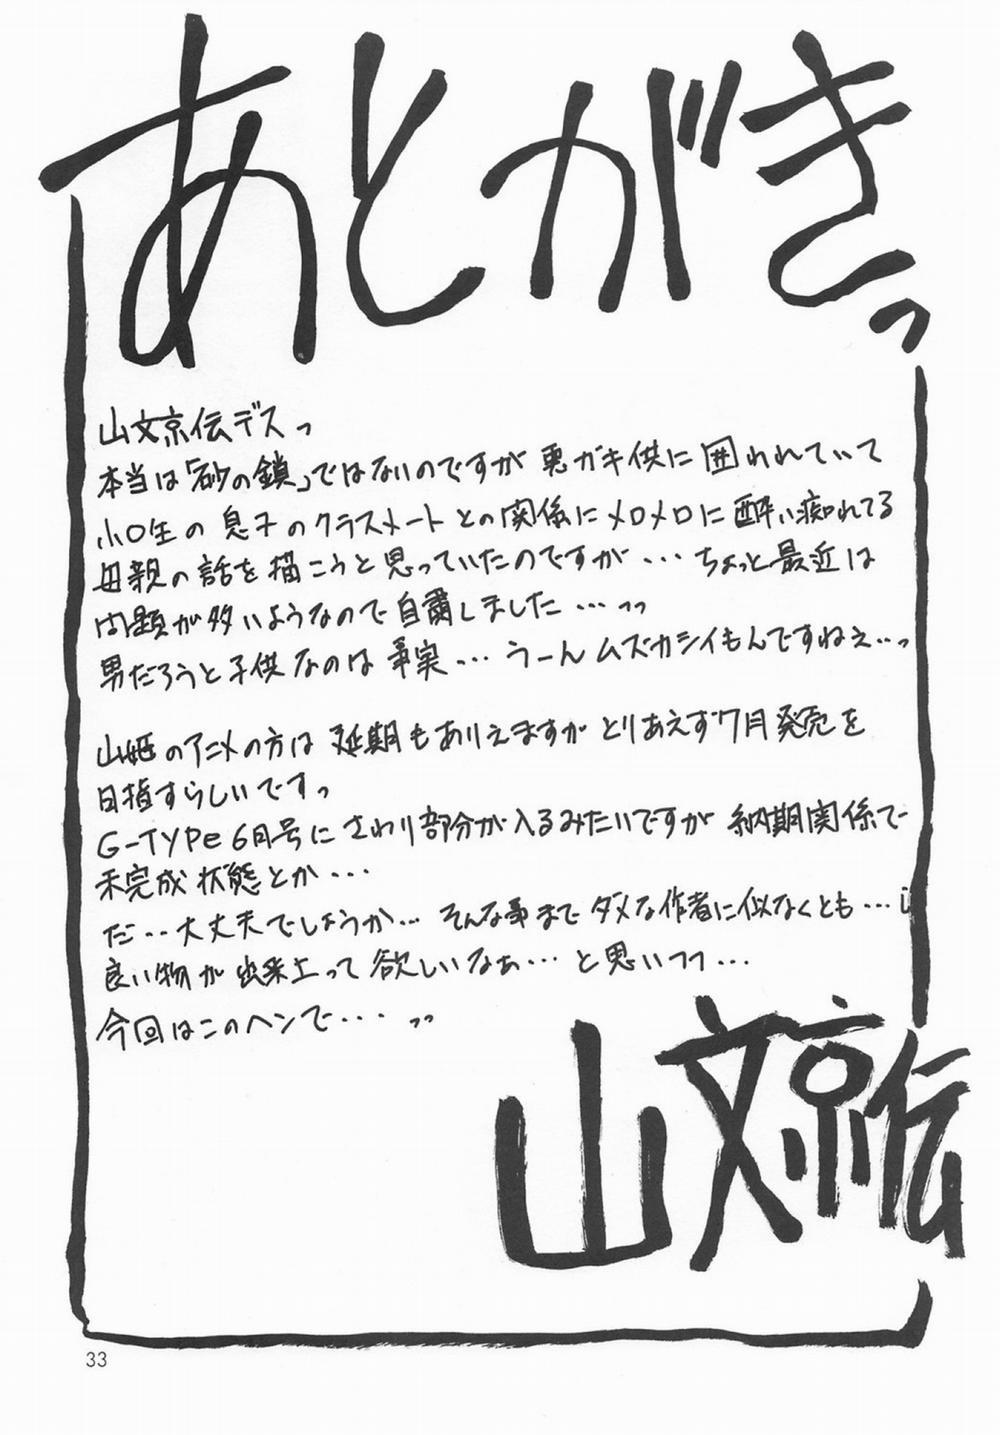 あとがきっ
山文京伝デスっ
本当は「砂の鎖」ではないのですが 悪ガキ供に 囲われれていて
小○生の 息子のクラスメートとの関係にメロメロに酔い痴れてる
母親の話を描こうと思っていたのですが… ちょっと最近は
問題が多いようなので自粛しました…っっ
男だろうと子供なのは 事実… うーん ムズカシイもんですねぇ…っ
山姫のアニメの方は 延期もありえますが とりあえず7月発売を
目指すらしいですっ
G-TYPe 6月号に さわり部分が入るみたいですが 納期関係で
未完成状態とか…
だ…大丈夫でしょうか… そんな事まで ダメな作者に似なくとも…
良い物が 出来上って 欲しいなぁ… と思いつつ…
今回はこのヘンで… っっ
山文京伝
33